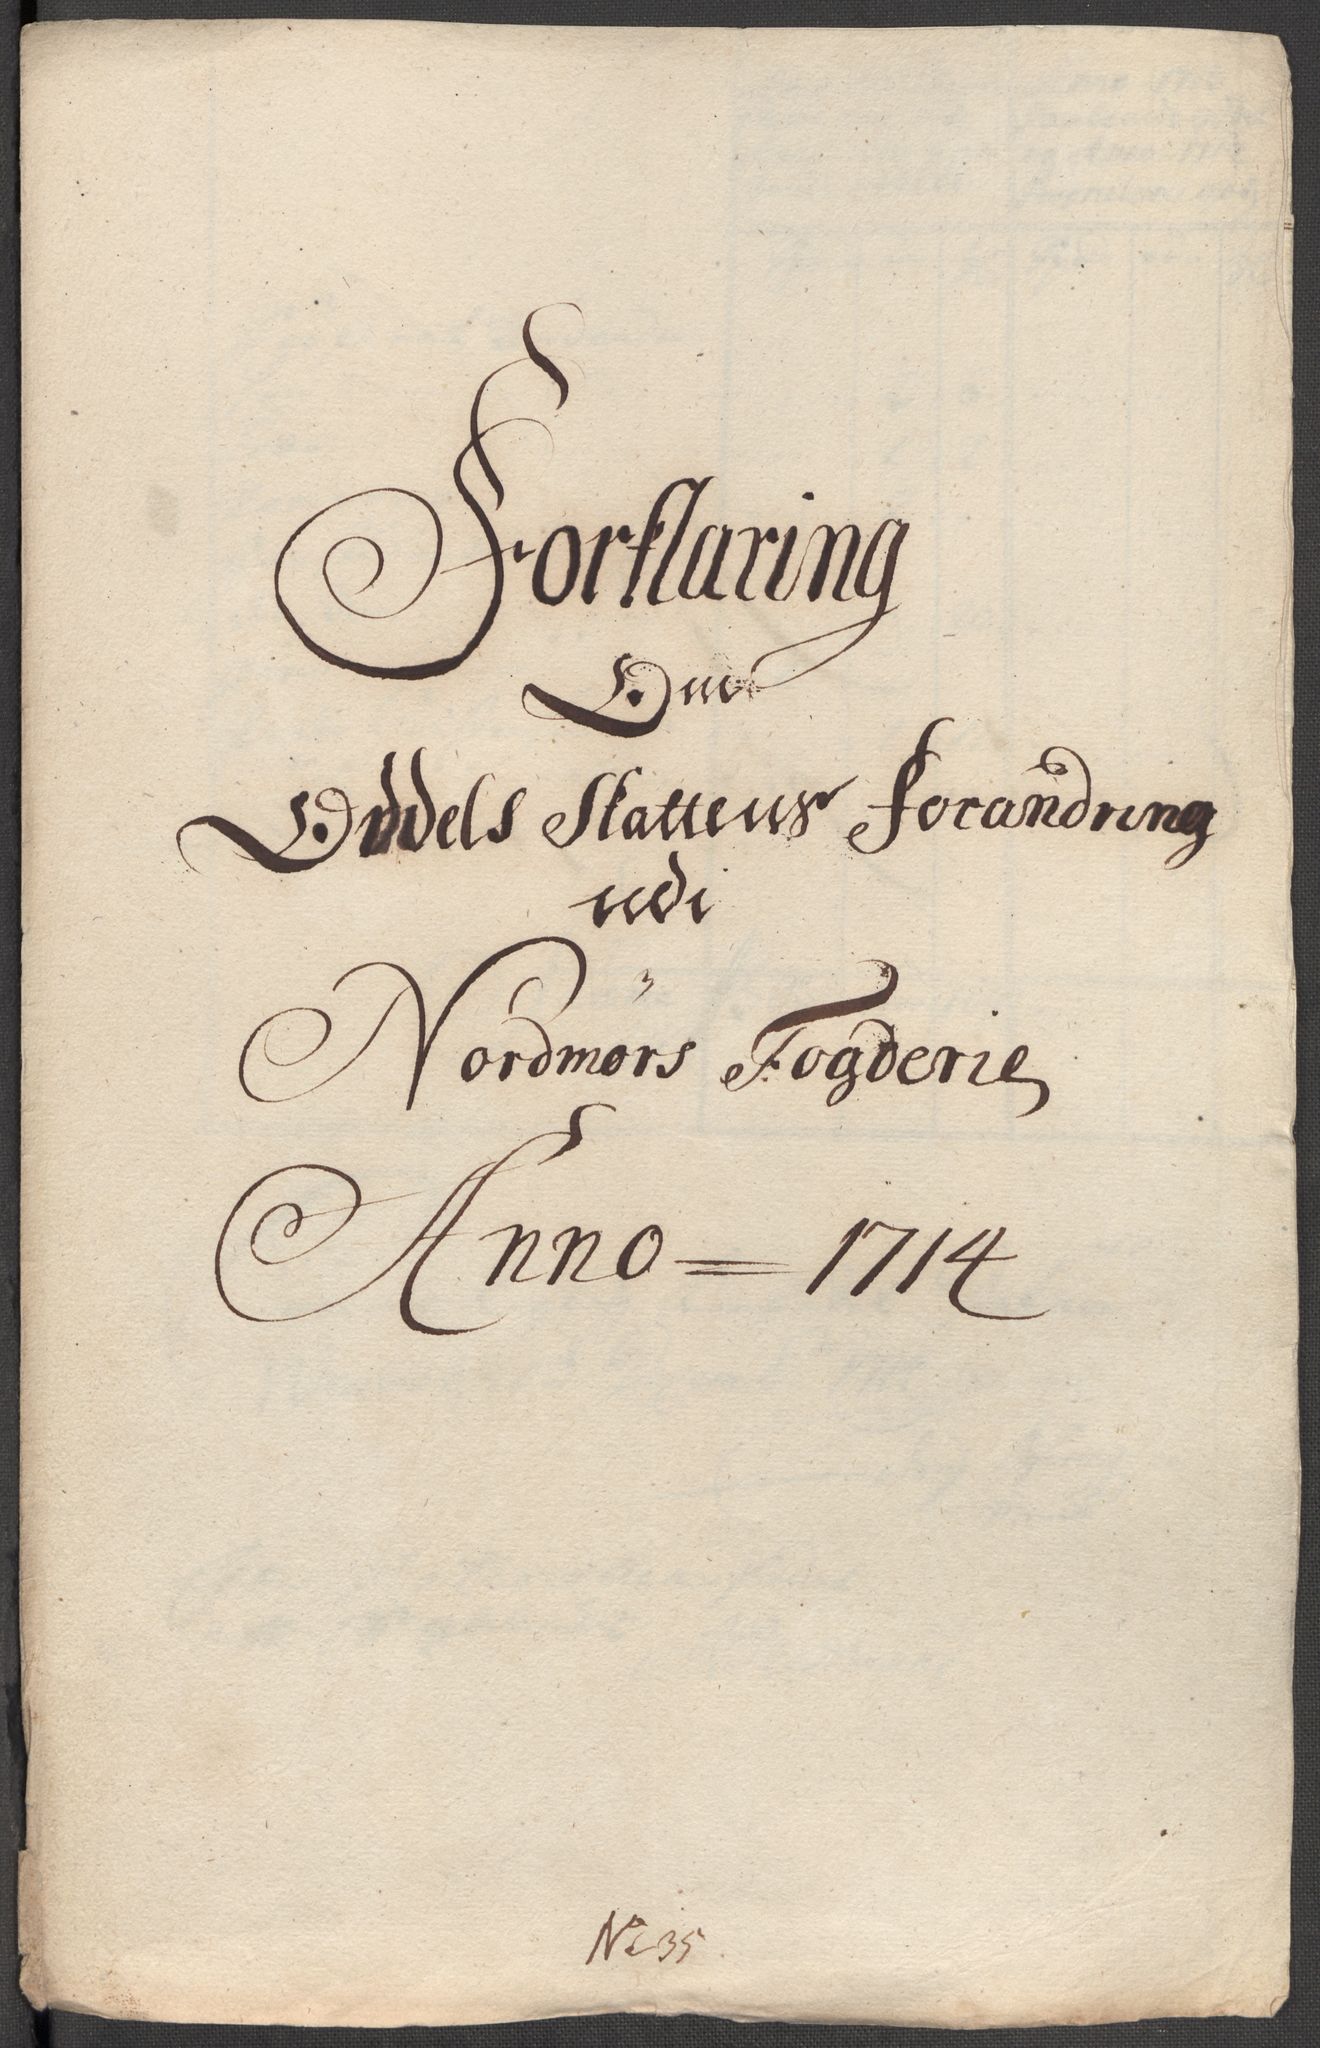 Forklaring
Om
Oddels Skattens forandring
udi
Nordmørs Fogderie
Anno = 1714
No 35